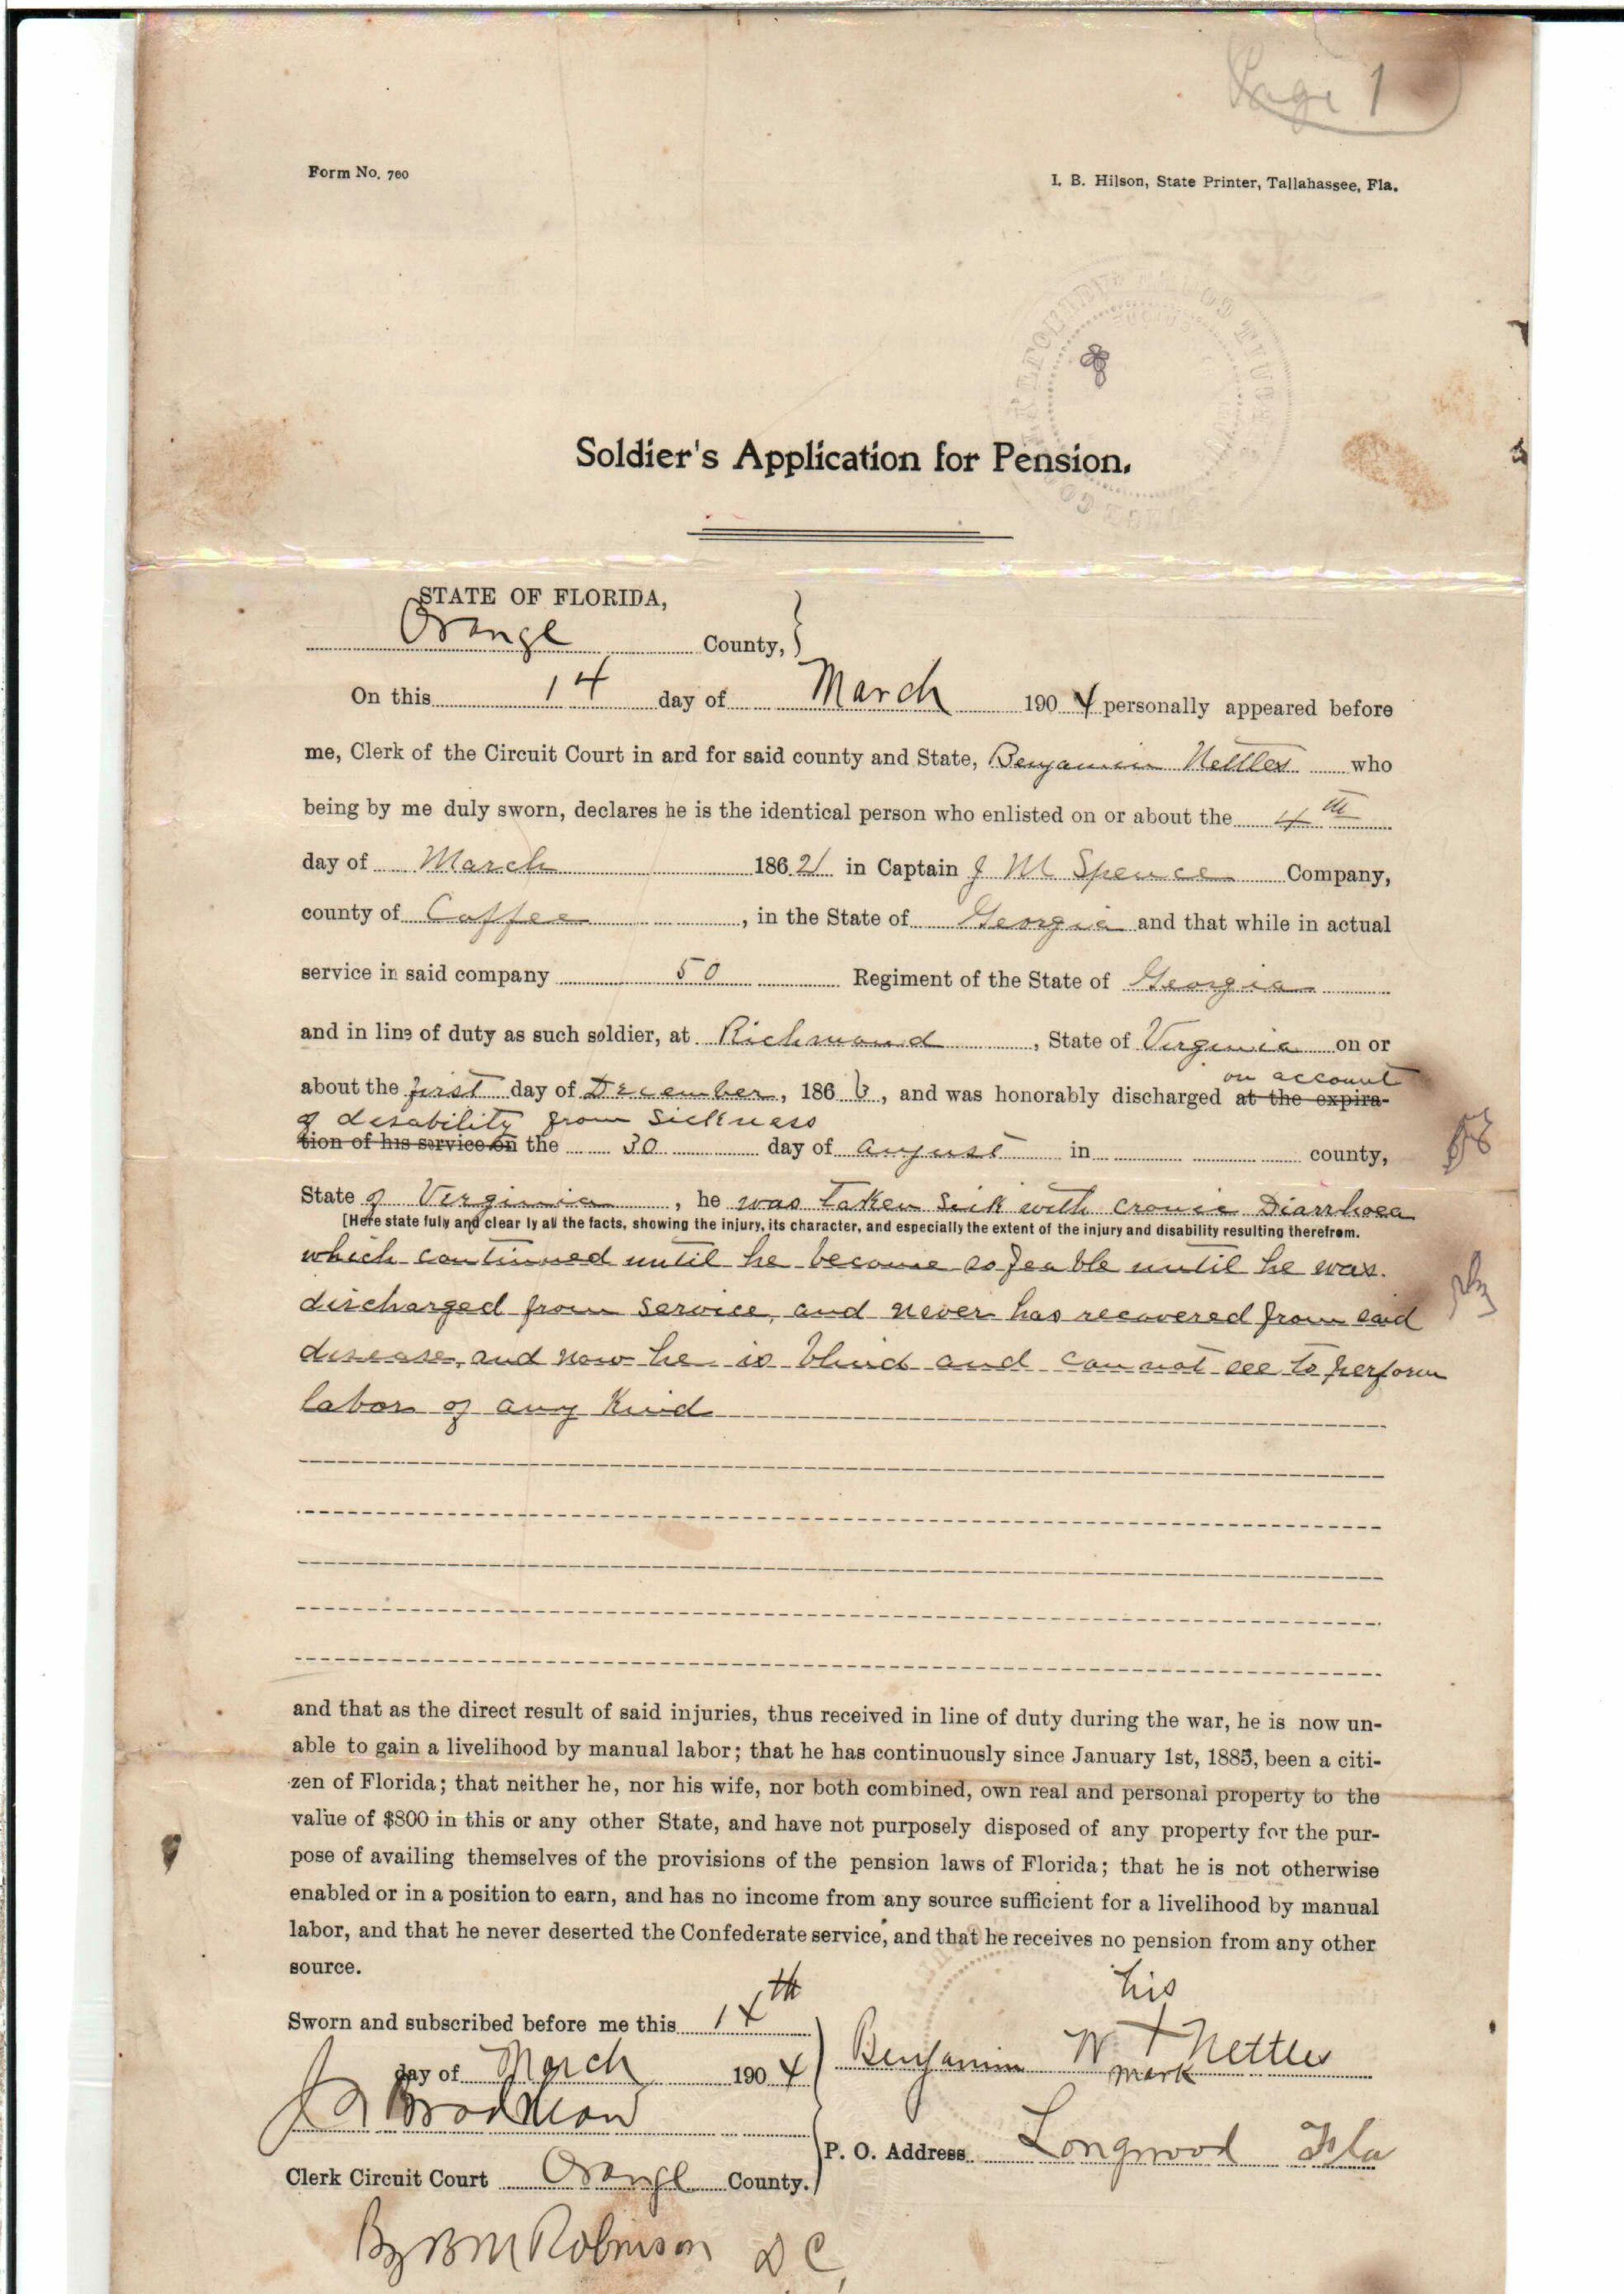 Page 1
Form No. 760
I. B. Hilson, State Printer, Tallahassee, Fla.
Soldier's Application for Pension.
STATE OF FLORIDA,
Orange County,
On this 14 day of March 1904 personally appeared before
me, Clerk of the Circuit Court in and for said county and State, Benjamin Nettles who
being by me duly sworn, declares he is the identical person who enlisted on or about the 4th
day of March 1862 in Captain J M Spence Company,
county of Coffee, in the State of Georgia and that while in actual
service in said company 50 Regiment of the State of Georgia
and in line of duty as such soldier, at Richmond, State of Virginia on or
on account
about the first day of December, 186, and was honorably discharged at the expira-
of desability from Sickness
tion of his service on the 30 day of august in county,
State of Verginia, he was taken sick with cronic Diarrhoea
[Here state fully and clear ly all the facts, showing the injury, its character, and especially the extent of the injury and disability resulting therefrom.
which continued until he become so feable until he was.
discharged from service, and never has recovered from said
disease, and now he is blind and can not see to perform
labor of any Kind
and that as the direct result of said injuries, thus received in line of duty during the war, he is now un-
able to gain a livelihood by manual labor; that he has continuously since January 1st, 1885, been a citi-
zen of Florida; that neither he, nor his wife, nor both combined, own real and personal property to the
value of $800 in this or any other State, and have not purposely disposed of any property for the pur-
pose of availing themselves of the provisions of the pension laws of Florida; that he is not otherwise
enabled or in a position to earn, and has no income from any source sufficient for a livelihood by manual
labor, and that he never deserted the Confederate service, and that he receives no pension from any other
source.
his
Sworn and subscribed before me this 14th
Benjamin W + Nettles
mark
day of March 1904
P. O. Address Longwood Fla
Clerk Circuit Court Orange County.
By B M Robinson D C,